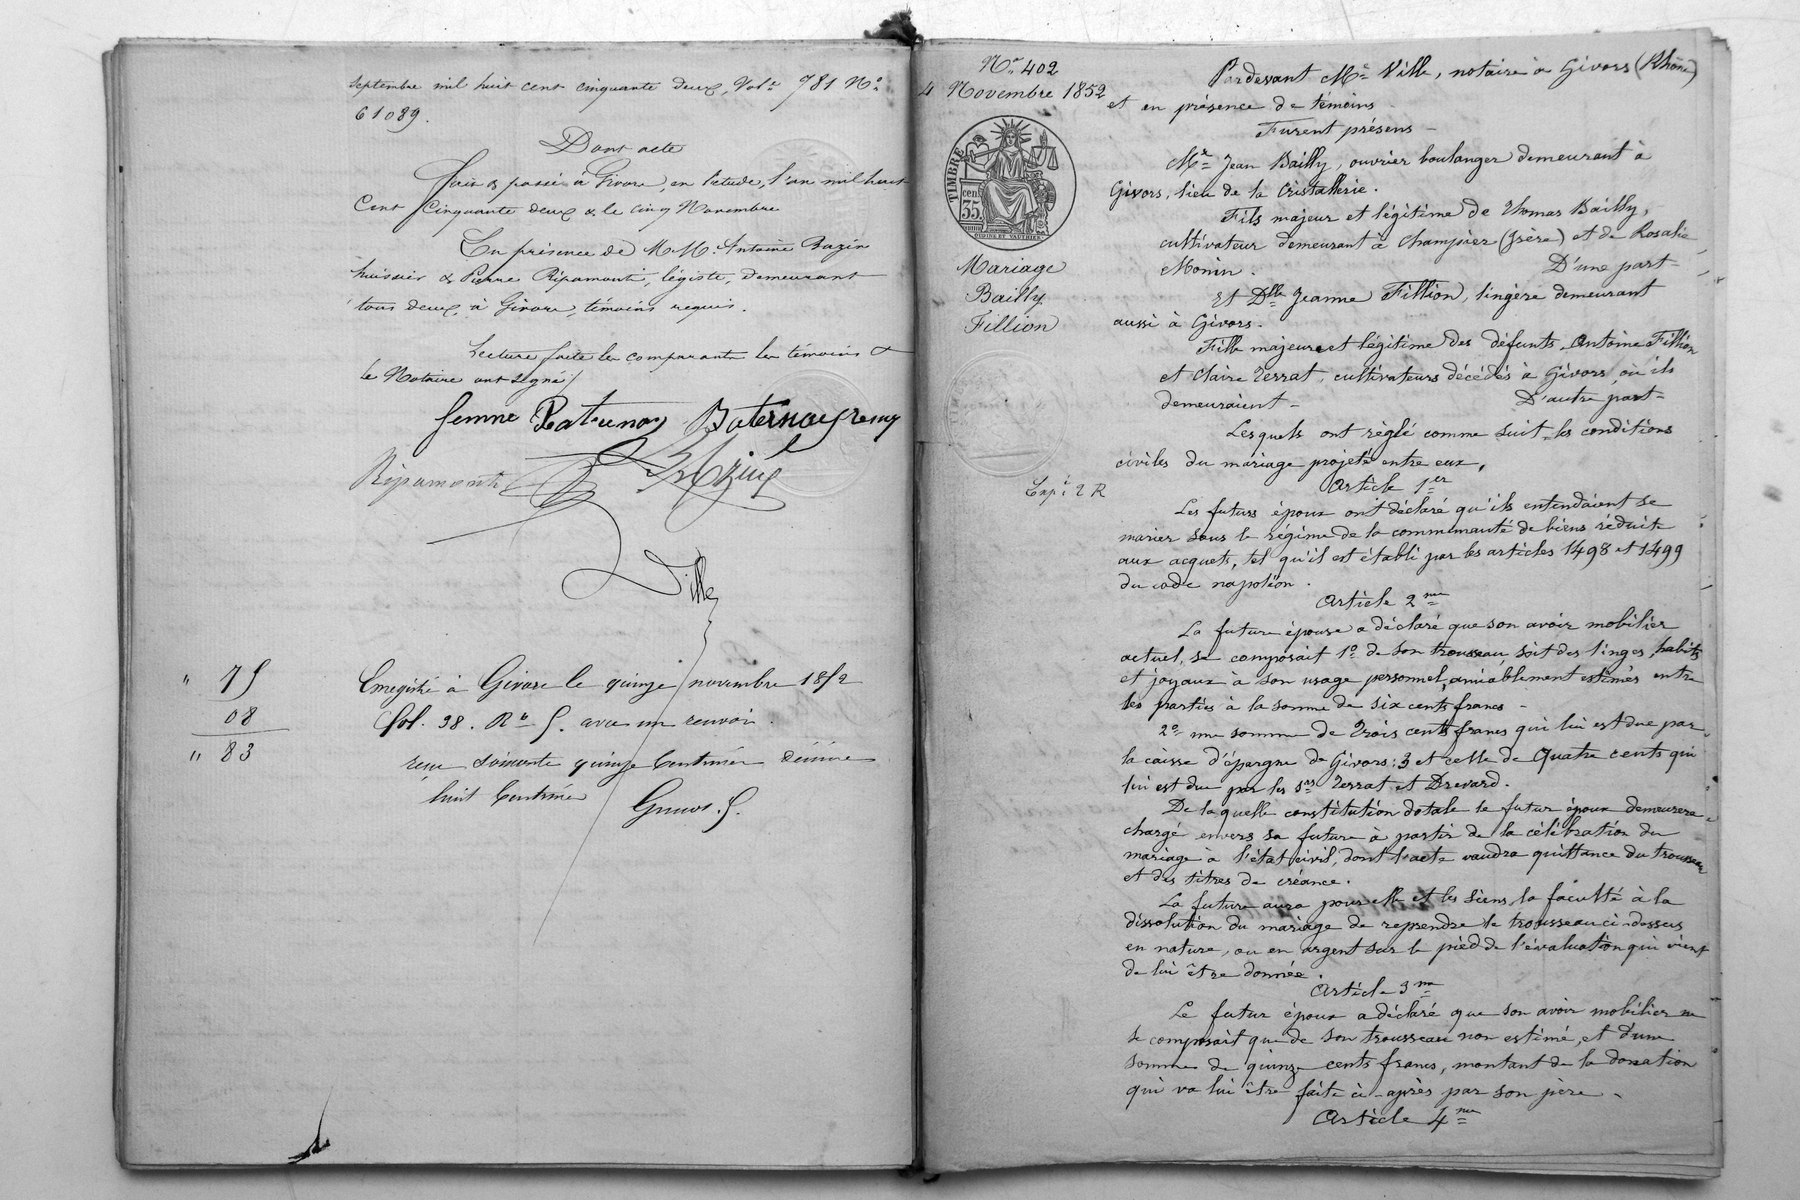 septembre mil huit cent cinquante deux, Vol.e 781 N.o
61089.
Dont acte
Fait & passé à Givors, en l'étude, l'an mil huit
Cent Cinquante deux & le cinq Novembre
En présence de M.M. Antoine Bazin
huissier & Pierre Ripamonti, légiste, demeurant
tous deux, à Givors, témoins requis.
Lecture faite les comparants les témoins &
le Notaire ont signé /
femme
Ripamonti
Ville
" 75
08
" 83
Enregistré à Givors le quinze novembre 1852
fol. 98. R.o 5. avec un renvoi.
reçu soixante quinze Centimes décime
huit Centimes
N.o 402
4 Novembre 1852
TIMBRE
cen
35
Mariage
Bailly
Fillion
Exp.é 2 R
Pardevant M.e Ville, notaire à Givors (Rhône)
et en présence de témoins
Furent présens -
M.r Jean Bailly, ouvrier boulanger demeurant à
Givors, lieu de la Cristallerie.
Fils majeur et légitime de Thomas Bailly,
cultivateur demeurant à Champier (Isère) et de Rosalie
Monin. D'une part -
Et D.lle Jeanne Fillion, lingère demeurant
aussi à Givors.
Fille majeure et légitime des défunts Antoine Fillion
et Claire Terrat, cultivateurs décédés à Givors, où ils
demeuraient - D'autre part -
Lesquels ont réglé comme suit les conditions
civiles du mariage projeté entre eux,
Article 1.er
Les futurs époux ont déclaré qu'ils entendaient se
marier sous le régime de la communauté de biens réduite
aux acquets, tel qu'il est établi par les articles 1498 et 1499
du code napoléon.
Article 2.me
La future épouse a déclaré que son avoir mobilier
actuel, se composait 1.o de son trousseau, soit des linges, habits
et joyaux à son usage personnel, amiablement estimés entre
les parties à la somme de six cents francs -
2.o une somme de Trois cents francs qui lui est due par
la caisse d'épargne de Givors; 3 et celle de Quatre cents qui
lui est due par les s.rs Terrat et Drevard.
De laquelle constitution dotale le futur époux demeurera
chargé envers sa future à partir de la célébration du
mariage à l'état civil, dont l'acte vaudra quittance du trousseau
et des titres de créance.
La future aura pour elle et les siens la faculté à la
dissolution du mariage de reprendre le trousseau ci-dessus
en nature, ou en argent sur le pied de l'évaluation qui vient
de lui être donnée.
Article 3.me
Le futur époux a déclaré que son avoir mobilier ne
se composait que de son trousseau non estimé, et d'une
somme de quinze cents francs, montant de la donation
qui va lui être faite ci-après par son père -
Article 4.me